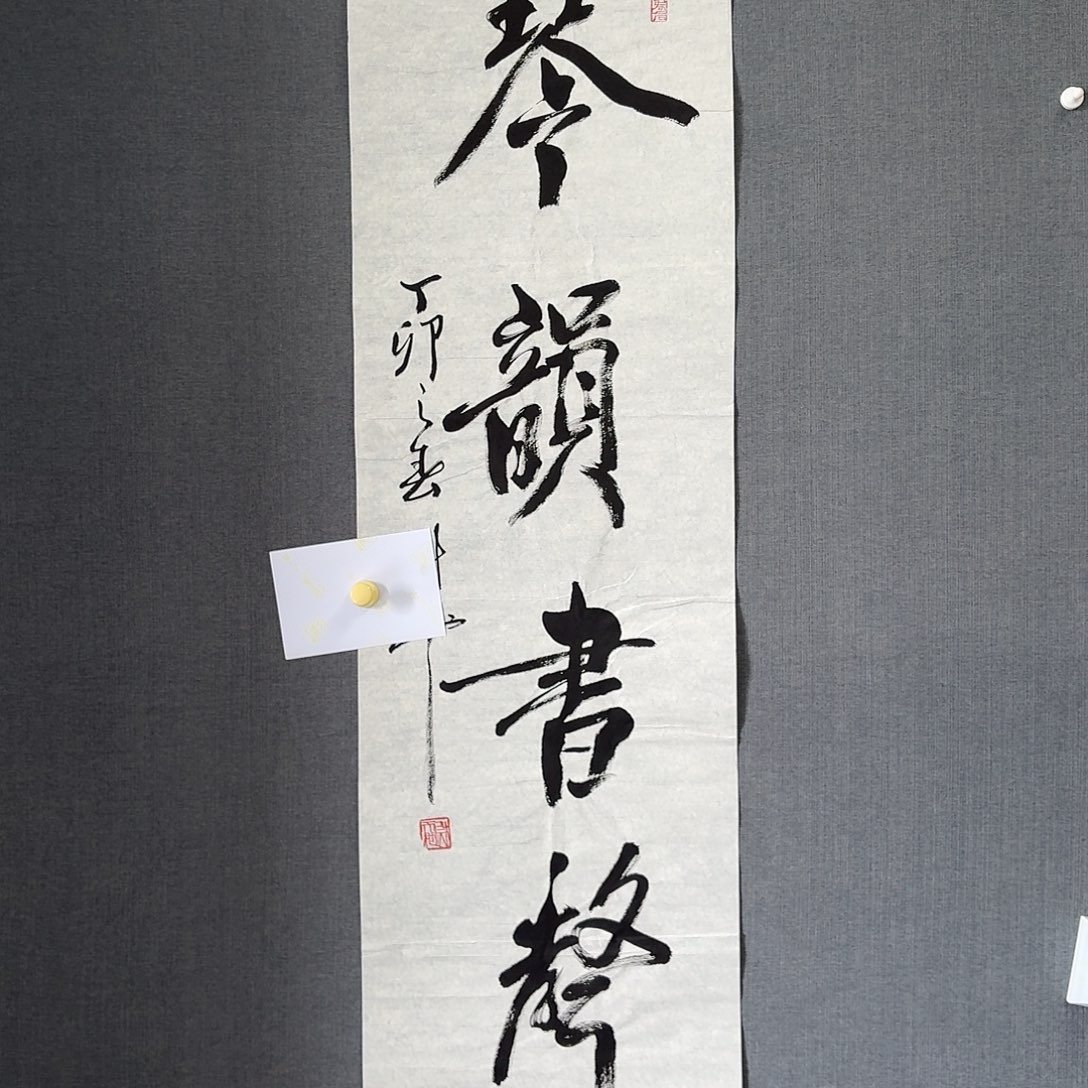 琴韻書聲
丁卯之春